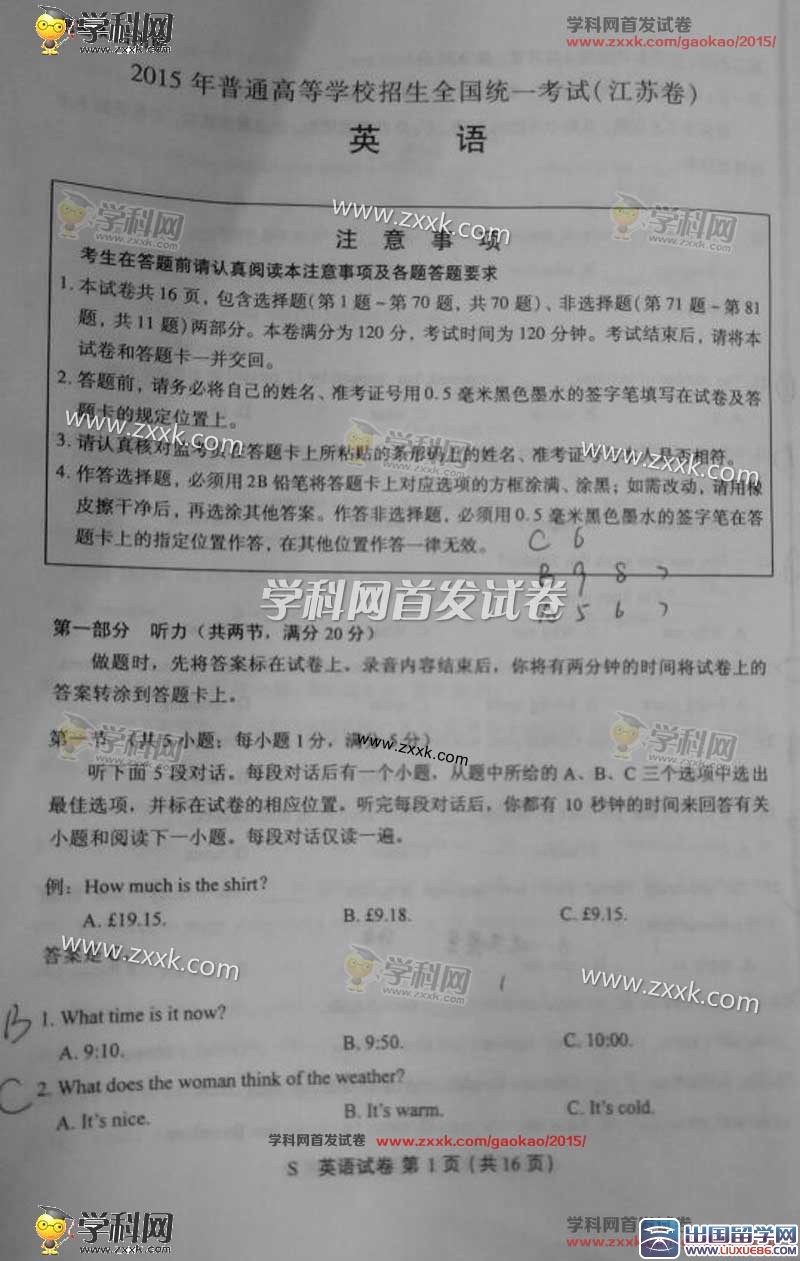 学科网
www.zxxk.com
学科网首发试卷
www.zxxk.com/gaokao/2015/
2015 年普通高等学校招生全国统一考试(江苏卷)
英 语
学科网
www.zxxk.com
学科网
注 意 事 项
考生在答题前请认真阅读本注意事项及各题答题要求
1. 本试卷共 16 页，包含选择题(第 1 题~第 70 题，共 70 题)、非选择题(第 71 题~第 81
题，共 11 题)两部分。本卷满分为 120 分，考试时间为 120 分钟。考试结束后，请将本
试卷和答题卡一并交回。
2. 答题前，请务必将自己的姓名、准考证号用 0.5 毫米黑色墨水的签字笔填写在试卷及答
题卡的规定位置上。
www.zxxk.com
学科网
www.zxxk.com
3. 请认真核对监考员在答题卡上所粘贴的条形码上的姓名、准考证号 人是否相符。
4. 作答选择题，必须用 2B 铅笔将答题卡上对应选项的方框涂满、涂黑；如需改动，请用橡
皮擦干净后，再选涂其他答案。作答非选择题，必须用 0.5 毫米黑色墨水的签字笔在答
题卡上的指定位置作答，在其他位置作答一律无效。
C 6
B 9 8 7
5 6 7
学科网首发试卷
第一部分 听力（共两节，满分 20 分）
做题时，先将答案标在试卷上。录音内容结束后，你将有两分钟的时间将试卷上的
答案转涂到答题卡上。
学科网
www.zxxk.com
学科网
第一节 （共 5 小题；每小题 1 分，满分 5 分）
听下面 5 段对话。每段对话后有一个小题，从题中所给的 A、B、C 三个选项中选出
最佳选项，并标在试卷的相应位置。听完每段对话后，你都有 10 秒钟的时间来回答有关
小题和阅读下一小题。每段对话仅读一遍。
例：How much is the shirt?
A. £19.15. B. £9.18. C. £9.15.
答案是
www.zxxk.com
学科网
www.zxxk.com
B 1. What time is it now?
A. 9:10. B. 9:50. C. 10:00.
C 2. What does the woman think of the weather?
A. It's nice. B. It's warm. C. It's cold.
学科网首发试卷 www.zxxk.com/gaokao/2015/
S 英语试卷 第 1 页 (共 16 页)
学科网
www.zxxk.com
学科网首发试卷
www.zxxk.com/gaokao/2015/
出国留学网
www.liuxue86.com